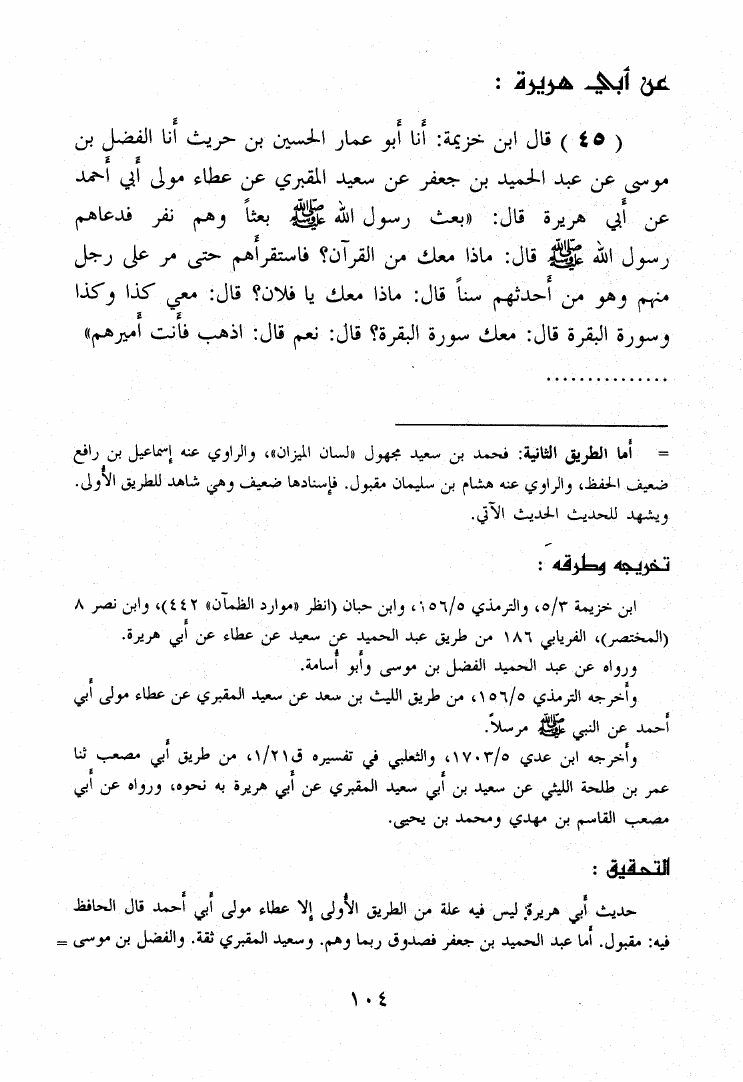 عن أبي هريرة :
( ٤٥ ) قال ابن خزيمة: أنا أبو عمار الحسين بن حريث أنا الفضل بن
موسى عن عبد الحميد بن جعفر عن سعيد المقبري عن عطاء مولى أبي أحمد
عن أبي هريرة قال: «بعث رسول الله ﷺ بعثاً وهم نفر فدعاهم
رسول الله ﷺ قال: ماذا معك من القرآن؟ فاستقرأهم حتى مر على رجل
منهم وهو من أحدثهم سناً قال: ماذا معك يا فلان؟ قال: معي كذا وكذا
وسورة البقرة قال: معك سورة البقرة؟ قال: نعم قال: اذهب فأنت أميرهم»
...............
= أما الطريق الثانية: فحمد بن سعيد مجهول «لسان الميزان»، والراوي عنه إسماعيل بن رافع
ضعيف الحفظ، والراوي عنه هشام بن سليمان مقبول. فإسنادها ضعيف وهي شاهد للطريق الأولى.
ويشهد للحديث الحديث الآتي.
تخريجه وطرقه :
ابن خزيمة ٥/٣، والترمذي ١٥٦/٥، وابن حبان (انظر «موارد الظمآن» ٤٤٢)، وابن نصر ٨
(المختصر)، الفريابي ١٨٦ من طريق عبد الحميد عن سعيد عن عطاء عن أبي هريرة.
ورواه عن عبد الحميد الفضل بن موسى وأبو أسامة.
وأخرجه الترمذي ١٥٦/٥، من طريق الليث بن سعد عن سعيد المقبري عن عطاء مولى أبي
أحمد عن النبي ﷺ مرسلاً.
وأخرجه ابن عدي ١٧٠٣/٥، والثعلبي في تفسيره ق١/٢١، من طريق أبي مصعب ثنا
عمر بن طلحة الليثي عن سعيد بن أبي سعيد المقبري عن أبي هريرة به نحوه، ورواه عن أبي
مصعب القاسم بن مهدي ومحمد بن يحيى.
التحقيق :
حديث أبي هريرة: ليس فيه علة من الطريق الأولى إلا عطاء مولى أبي أحمد قال الحافظ
فيه: مقبول. أما عبد الحميد بن جعفر فصدوق ربما وهم. وسعيد المقبري ثقة. والفضل بن موسى =
١٠٤